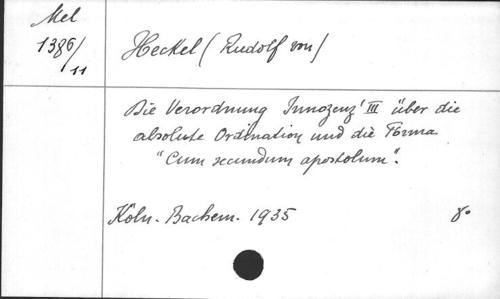 Mel
1386/
11
Heckel (Rudolf von)
Die Verordnung Innozenz' III über die
absolute Ordination und die Forma
"Cum secundum apostolum".
Köln. Bachem. 1935 8°